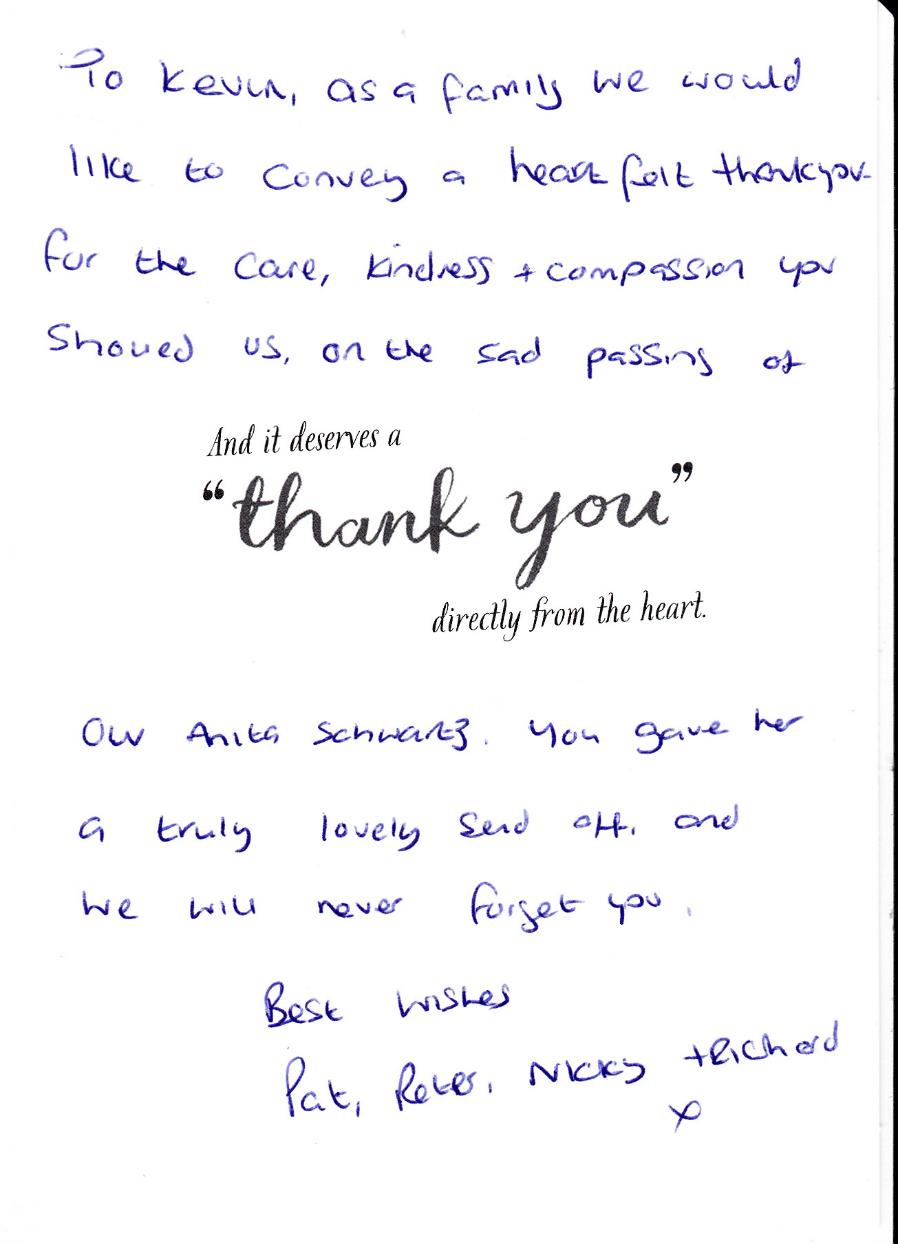 To Kevin, as a family we would
like to convey a heart felt thankyou
for the care, kindness + compassion you
showed us, on the sad passing of
And it deserves a
“thank you”
directly from the heart.
Our Anita Schwartz. You gave her
a truly lovely send off, and
we will never forget you.
Best wishes
Pat, Peter, Nicky + Richard
x